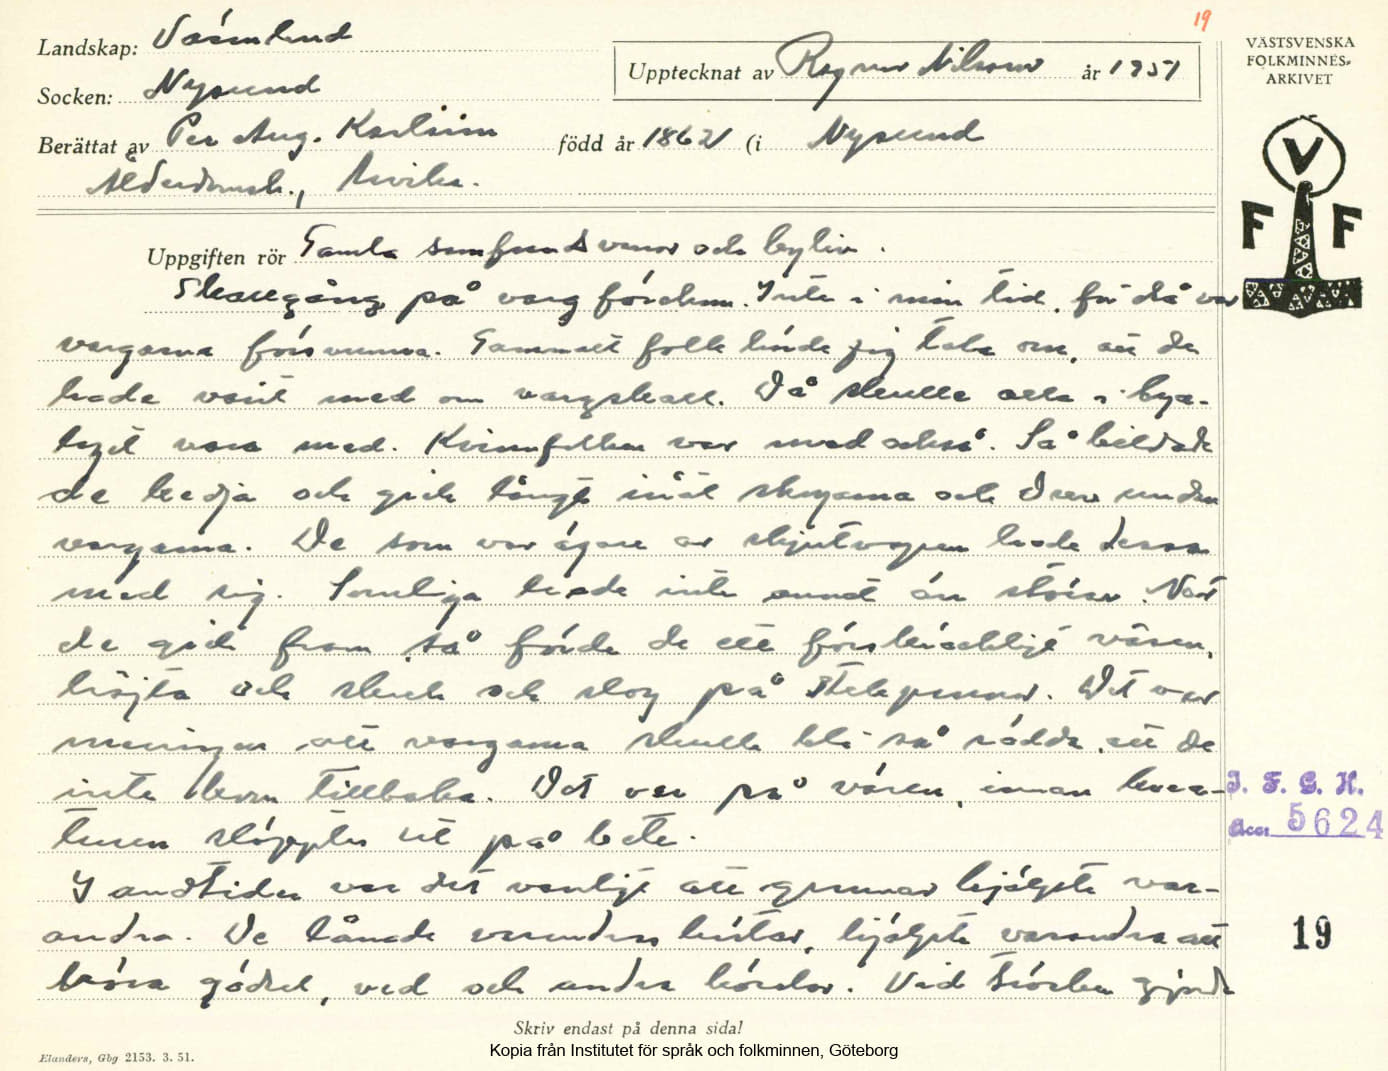 19
Landskap: Värmland
Socken: Nysund
Upptecknat av Ragnar Nilsson år 1951
Berättat av Per Aug. Karlsson född år 1862 (i Nysund
Ålderdomsh., Arvika.
VÄSTSVENSKA
FOLKMINNES-
ARKIVET
V
F F
Uppgiften rör Gamla samfundsvanor och byliv.
Skallgång på varg fördom. Inte i min tid, för då var
vargarna försvunna. Gammalt folk hörde jag tala om, att de
hade varit med om vargskall. Då skulle alla i bya-
laget vara med. Kvinnfolken var med också. Så bildade
de kedja och gick långt inåt skogarna och drev undan
vargarna. De som var ägare av skjutvapen hade dessa
med sig. Somliga hade inte annat än störar. När
de gick fram så förde de ett förskräckligt väsen,
höjta och skrek och slog på stekpannor. Det var
meningen att vargarna skulle bli så rädda, att de
inte kom tillbaka. Det var på våren, innan krea-
turen släpptes ut på bete.
I andtiden var det vanligt att grannar hjälpte var-
andra. De lånade varandras hästar, hjälpte varandra att
köra gödsel, ved och andra körslor. Vid gjorde
I. F. G. H.
Acc. 5624
19
Skriv endast på denna sida!
Elanders, Gbg 2153. 3. 51.
Kopia från Institutet för språk och folkminnen, Göteborg